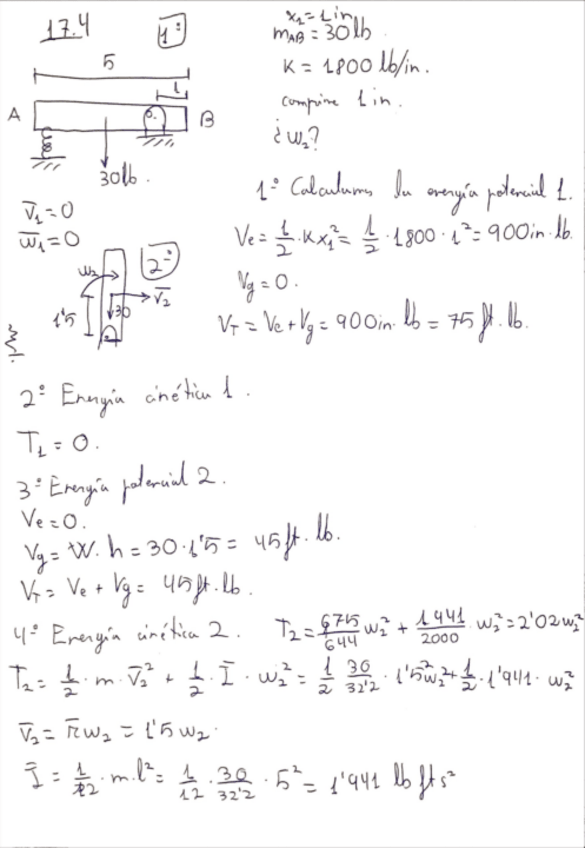 17.4
1º
x₁ = 1 in
m_AB = 30 lb
K = 1800 lb/in.
comprime 1 in.
¿ω₂?
5
1
A
B
30 lb.
V̄₁ = 0
ω̄₁ = 0
2º
ω₂
V̄₂
30
1'5
1º Calculamos la energía potencial 1.
Ve = 1/2 · K x₁² = 1/2 · 1800 · 1² = 900 in·lb.
Vg = 0.
V_T = Ve + Vg = 900 in·lb = 75 ft·lb.
2º Energía cinética 1.
T₁ = 0.
3º Energía potencial 2.
Ve = 0.
Vg = W·h = 30·1'5 = 45 ft·lb.
V_T = Ve + Vg = 45 ft·lb.
4º Energía cinética 2.
T₂ = 675/644 ω₂² + 1941/2000 · ω₂² = 2'02 ω₂²
T₂ = 1/2 · m · V̄₂² + 1/2 · Ī · ω₂² = 1/2 · 30/32'2 · 1'5² ω₂² + 1/2 · 1'941 · ω₂²
V̄₂ = r̄ ω₂ = 1'5 ω₂.
Ī = 1/12 · m·l² = 1/12 · 30/32'2 · 5² = 1'941 lb ft s²